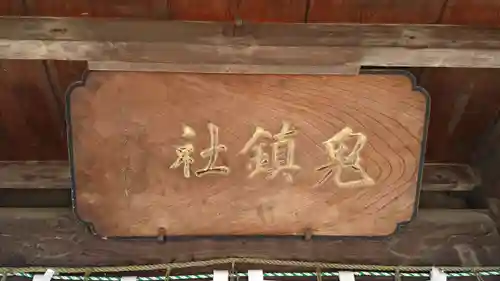 鬼鎮社